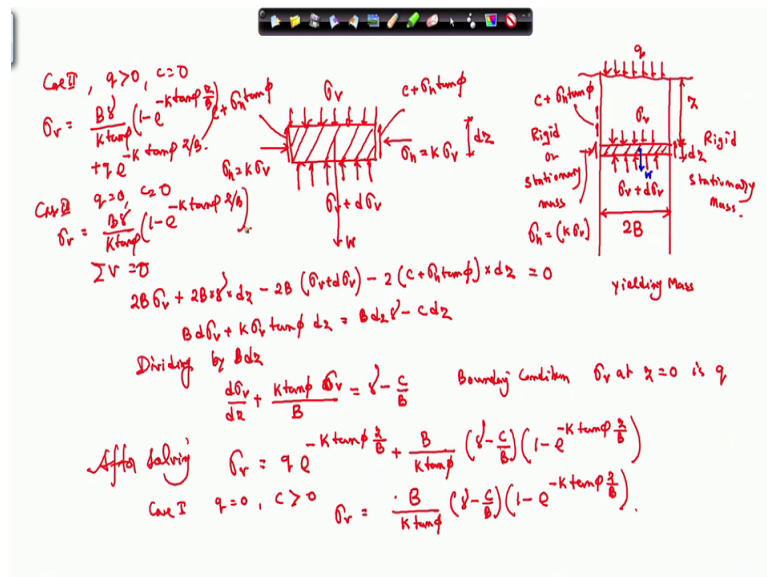 Case II, q>0, c=0
σv = Bγ/Ktanφ (1-e^-Ktanφ z/B)
+ q e^-K tanφ z/B.
Case III q=0, c=0
σv = Bγ/Ktanφ (1-e^-Ktanφ z/B)
ΣV = 0
σv
c+σh tanφ
c+σh tanφ
σh = kσv
σh = k σv
dz
σv + dσv
W
q
c+σh tanφ
z
σv
Rigid
or
stationary
mass
dz
W
σv+dσv
Rigid
stationary
Mass.
σh = (kσv)
2B
yielding Mass
2Bσv + 2B×γ×dz - 2B (σv+dσv) - 2 (c+σh tanφ)×dz = 0
B dσv + Kσv tanφ dz = B dz γ - c dz
Dividing by Bdz
dσv/dz + Ktanφ/B σv = γ - c/B
Boundary Condition σv at z=0 is q
After solving σv = q e^-Ktanφ z/B + B/Ktanφ (γ-c/B)(1-e^-Ktanφ z/B)
Case I q=0, c>0 σv = B/Ktanφ (γ-c/B)(1-e^-Ktanφ z/B).